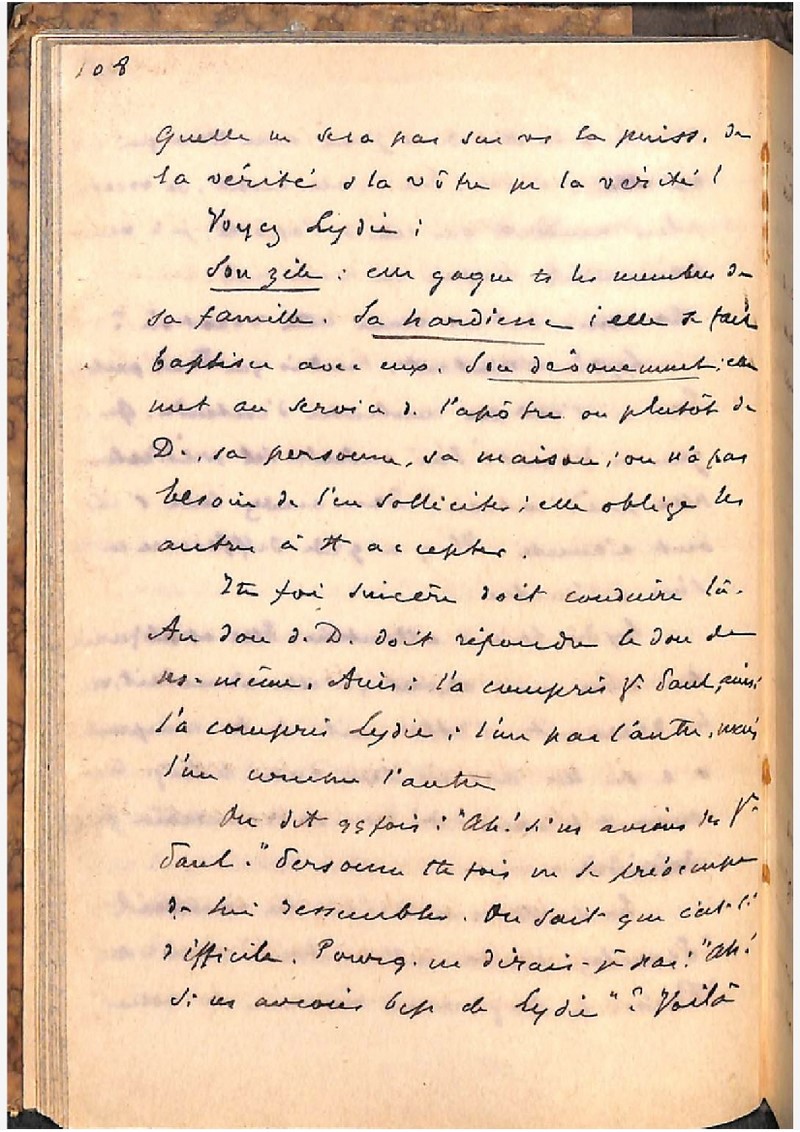 108
Quelle ne sera pas sur vs la puiss. de
la vérité & la vôtre pr la vérité !
Voyez Lydie :
Son zèle : elle gagne ts les membres de
sa famille. Sa hardiesse : elle se fait
baptiser avec eux. Son dévouement : elle
met au service de l'apôtre ou plutôt de
D., sa personne, sa maison ; on n'a pas
besoin de l'en solliciter ; elle oblige les
autres à tt accepter.
Tte foi sincère doit conduire là.
Au don de D. doit répondre le don de
ns-même. Ainsi l'a compris St Paul, ainsi
l'a compris Lydie ; l'un par l'autre, mais
l'un comme l'autre
On dit qqfois : "Ah ! si ns avions des St
Paul." Personne ttefois ne se préoccupe
de lui ressembler. On sait que c'est si
difficile. Pourq. ne dirais-je pas : "Ah !
si ns avions bcp de Lydie" ? Voilà